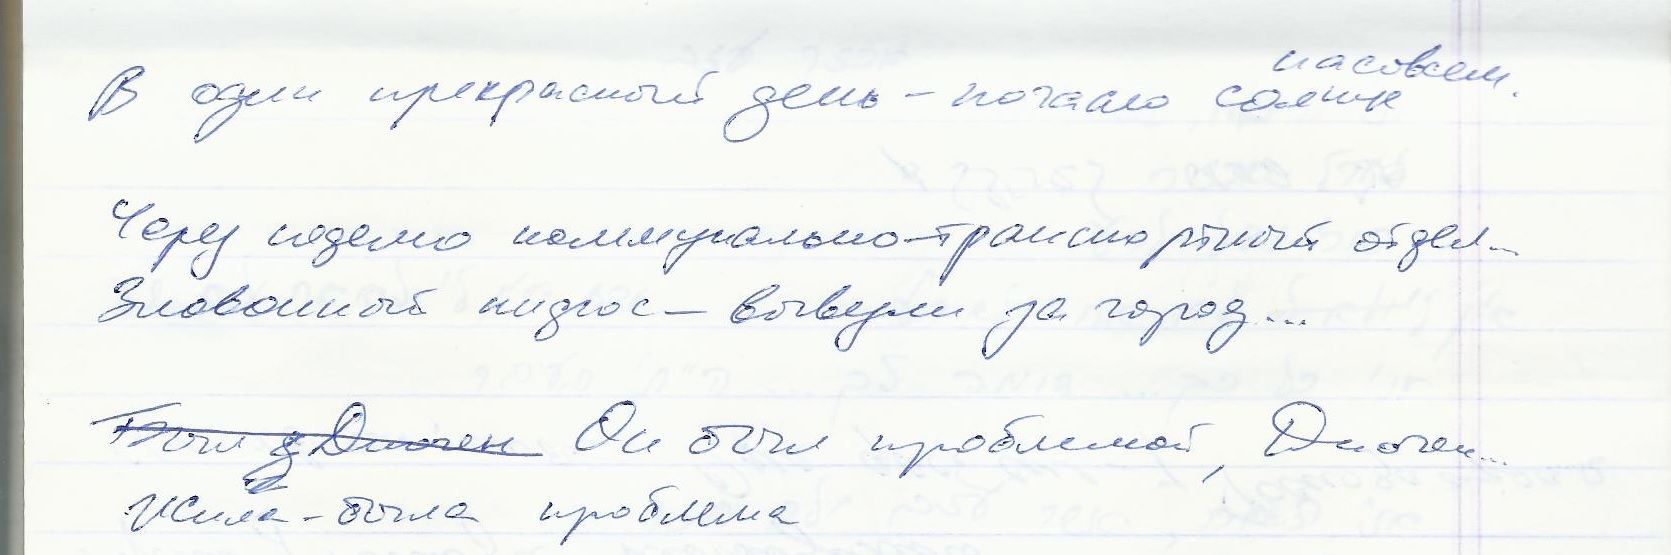 насовсем.
В один прекрасный день – погасло солнце
Через неделю коммунально-транспортный отдел...
Зловонный – вывезли за город...
Был Он был проблемой, Диоген...
Жила-была проблема